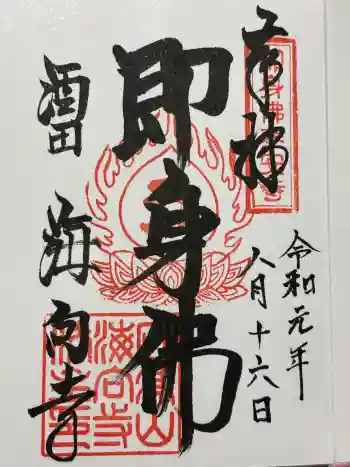 奉拝
令和元年
八月十六日
即身佛
酒田 海向寺